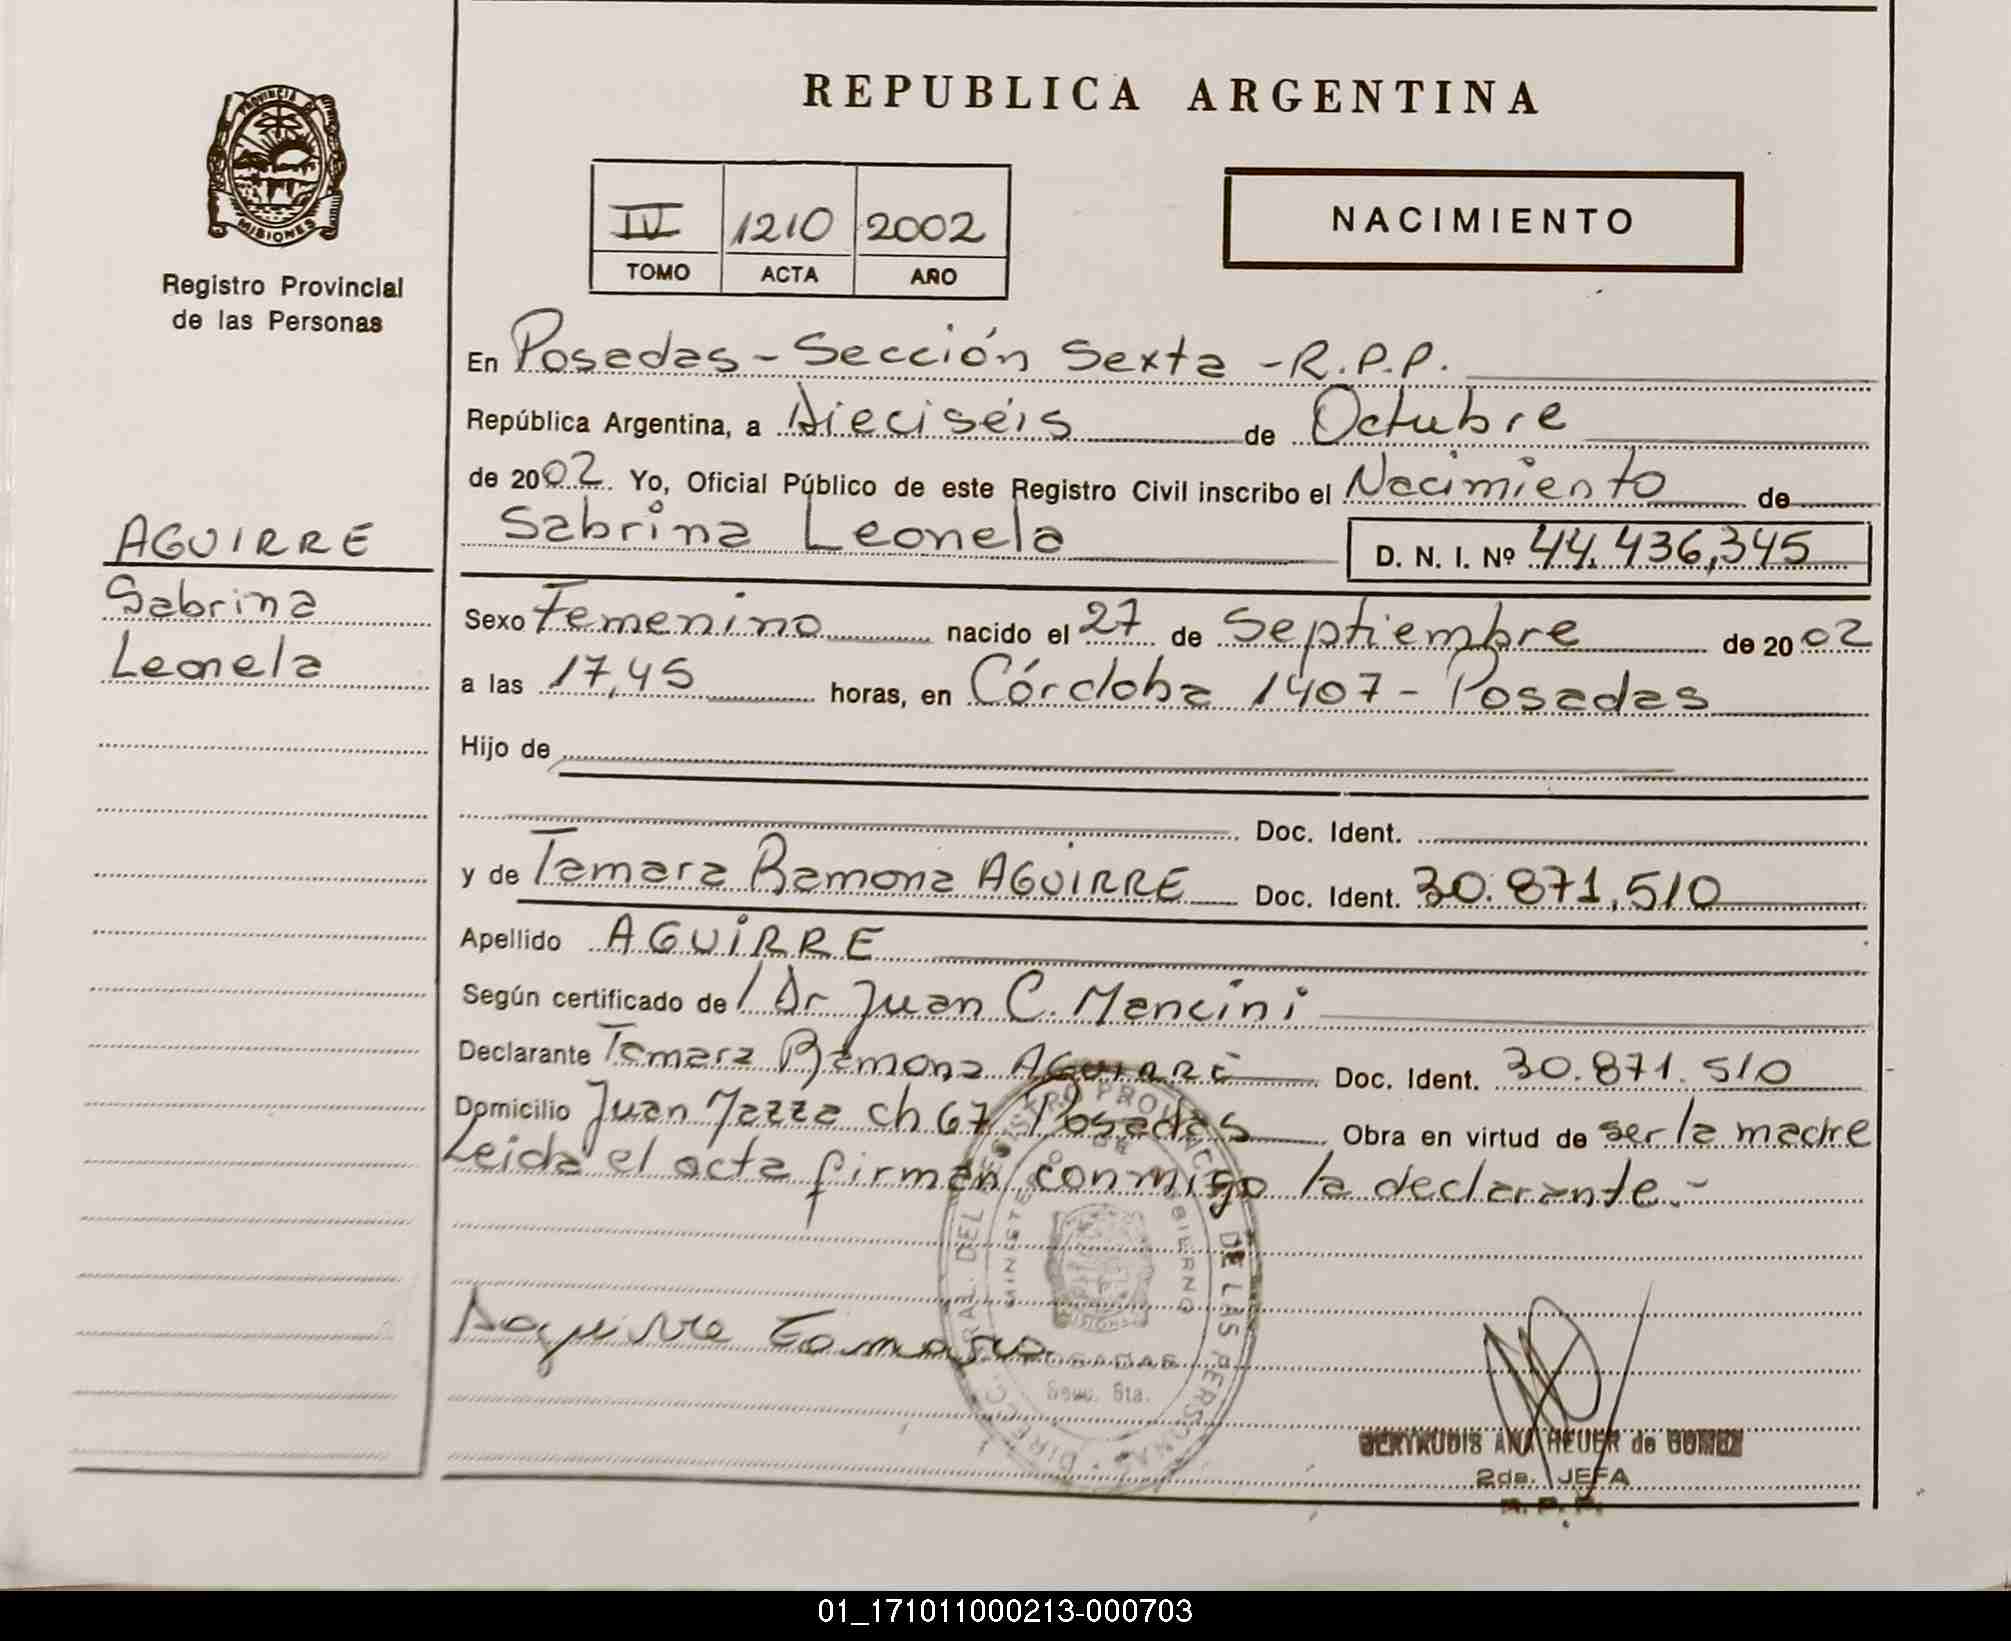 REPUBLICA ARGENTINA
PROVINCIA DE
MISIONES
Registro Provincial
de las Personas
IV 1210 2002
TOMO ACTA AÑO
NACIMIENTO
En Posadas - Sección Sexta - R.P.P.
República Argentina, a Dieciséis de Octubre
de 2002. Yo, Oficial Público de este Registro Civil inscribo el Nacimiento de
Sabrina Leonela D. N. I. Nº 44.436,345
AGUIRRE
Sabrina
Leonela
Sexo Femenino nacido el 27 de Septiembre de 2002
a las 17,45 horas, en Córdoba 1407 - Posadas
Hijo de
Doc. Ident.
y de Tamara Ramona AGUIRRE Doc. Ident. 30.871,510
Apellido AGUIRRE
Según certificado de / Dr Juan C. Mancini
Declarante Tamara Ramona AGUIRRE Doc. Ident. 30.871.510
Domicilio Juan Mazza ch 67 Posadas Obra en virtud de ser la madre
Leida el acta firman conmigo la declarante.-
Aguirre Tamara
DIRECC. GRAL. DEL REGISTRO PROVINC. DE LAS PERSONAS
MINISTERIO DE GOBIERNO
MISIONES
POSADAS
Secc. 6ta.
GERTRUDIS ANA HEUER de GOMEZ
2da. JEFA
R. P. P.
01_171011000213-000703